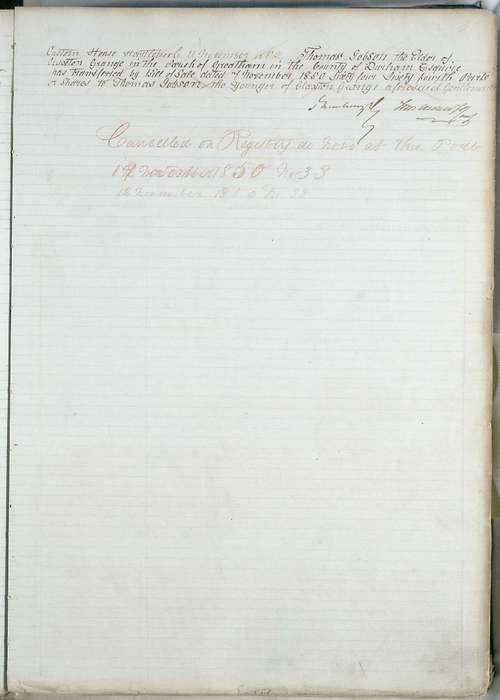 Custom House Hartlepool 11 November 1850. Thomas Jobson the Elder of
Claxton Grange in the Parish of Greatham in the County of Durham Esquire
has transferred by Bill of Sale dated 7 November 1850 Sixty four Sixty fourth Parts
or Shares to Thomas Jobson the Younger of Claxton Grange aforesaid Gentleman
Cancelled on Registry de novo at this Port
12 November 1850 No 33
12 November 1850 No 33